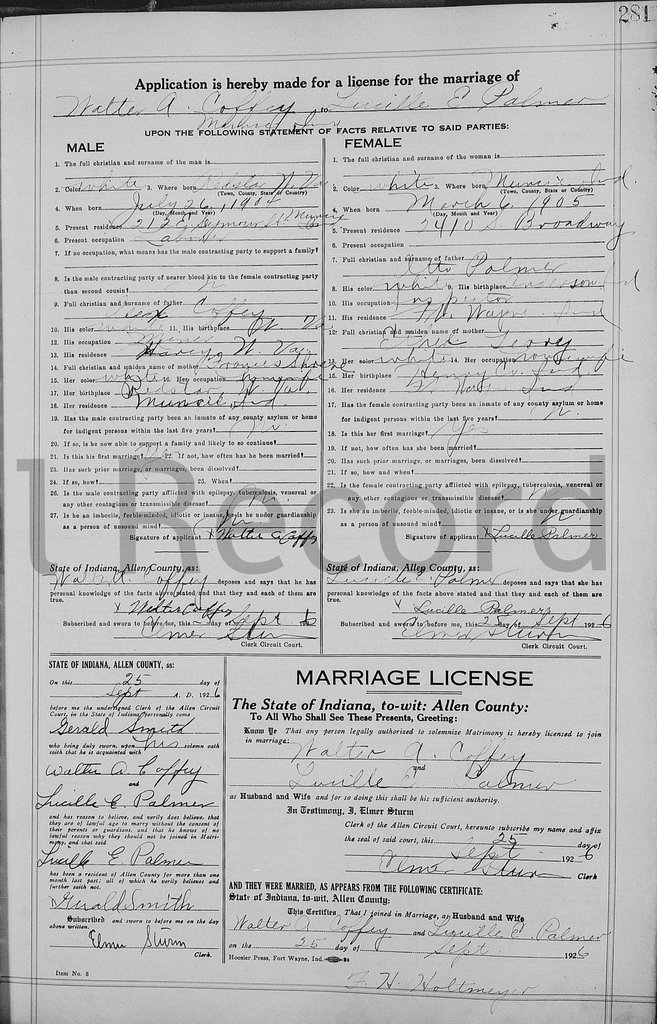 281
Application is hereby made for a license for the marriage of
Walter A. Coffey to Lucille E. Palmer
UPON THE FOLLOWING STATEMENT OF FACTS RELATIVE TO SAID PARTIES:
MALE
1. The full christian and surname of the man is
2. Color white 3. Where born W. Va
(Town, County, State or Country)
4. When born July 26, 1904
(Day, Month and Year)
5. Present residence 212 E. Seymour St Muncie
6. Present occupation Laborer
7. If no occupation, what means has the male contracting party to support a family?
8. Is the male contracting party of nearer blood kin to the female contracting party
than second cousin? N
9. Full christian and surname of father Coffey
10. His color white 11. His birthplace W. Va
12. His occupation Miner
13. His residence W. Va
14. Full christian and maiden name of mother Frances
15. Her color white 16. Her occupation housewife
17. Her birthplace Redstar W. Va
18. Her residence Muncie Ind
19. Has the male contracting party been an inmate of any county asylum or home
for indigent persons within the last five years? No
20. If so, is he now able to support a family and likely to continue?
21. Is this his first marriage? 22. If not, how often has he been married?
23. Has such prior marriage, or marriages, been dissolved?
24. If so, how? 25. When?
26. Is the male contracting party afflicted with epilepsy, tuberculosis, venereal or
any other contagious or transmissible disease? N
27. Is he an imbecile, feeble-minded, idiotic or insane, or is he under guardianship
as a person of unsound mind? N
Signature of applicant x Walter A Coffey
State of Indiana, Allen County, ss:
Walter A. Coffey deposes and says that he has
personal knowledge of the facts above stated and that they and each of them are
true.
x Walter Coffey
Subscribed and sworn to before me, this 25 day of Sept 1926
Elmer Sturm
Clerk Circuit Court.
FEMALE
1. The full christian and surname of the woman is
2. Color white 3. Where born Muncie Ind.
(Town, County, State or Country)
4. When born March 6, 1905
(Day, Month and Year)
5. Present residence 2410 S. Broadway
6. Present occupation
7. Full christian and surname of father
Otto Palmer
8. His color white 9. His birthplace Ind
10. His occupation Inspector
11. His residence Ft. Wayne Ind
12. Full christian and maiden name of mother
13. Her color white 14. Her occupation housewife
15. Her birthplace Henry Co. Ind
16. Her residence Ft. Wayne Ind
17. Has the female contracting party been an inmate of any county asylum or home
for indigent persons within the last five years? N
18. Is this her first marriage? Yes
19. If not, how often has she been married?
20. Has such prior marriage, or marriages, been dissolved?
21. If so, how and when?
22. Is the female contracting party afflicted with epilepsy, tuberculosis, venereal or
any other contagious or transmissible disease?
23. Is she an imbecile, feeble-minded, idiotic or insane, or is she under guardianship
as a person of unsound mind? N
Signature of applicant x Lucille Palmer
State of Indiana, Allen County, ss:
Lucille E. Palmer deposes and says that she has
personal knowledge of the facts above stated and that they and each of them are
true.
x Lucille Palmer
Subscribed and sworn to before me, this 25 day of Sept 1926
Elmer Sturm
Clerk Circuit Court.
Record
STATE OF INDIANA, ALLEN COUNTY, ss:
On this 25 day of
Sept A. D. 1926
before me the undersigned Clerk of the Allen Circuit
Court, in the State of Indiana, personally come
Gerald Smith
who being duly sworn, upon his solemn oath
saith that he is acquainted with
Walter A. Coffey
and
Lucille E. Palmer
and has reason to believe, and verily does believe, that
they are of lawful age to marry without the consent of
their parents or guardians, and that he knows of no
lawful reason why they should not be joined in Matri-
mony, and that said
Lucille E Palmer
has been a resident of Allen County for more than one
month last past; all of which he verily believes and
further saith not.
x Gerald Smith
Subscribed and sworn to before me on the day
above written.
Elmer Sturm
Clerk.
Item No. 8
MARRIAGE LICENSE
The State of Indiana, to-wit: Allen County:
To All Who Shall See These Presents, Greeting:
Know Ye That any person legally authorized to solemnize Matrimony is hereby licensed to join
in marriage:
Walter A. Coffey
and
Lucille E Palmer
as Husband and Wife and for so doing this shall be his sufficient authority.
In Testimony, I, Elmer Sturm
Clerk of the Allen Circuit Court, hereunto subscribe my name and affix
the seal of said court, this 25 day of
Sept 1926
Elmer Sturm Clerk
AND THEY WERE MARRIED, AS APPEARS FROM THE FOLLOWING CERTIFICATE:
State of Indiana, to-wit, Allen County:
This Certifies, That I joined in Marriage, as Husband and Wife
Walter A Coffey and Lucille E. Palmer
on the 25 day of Sept 1926
Hoosier Press, Fort Wayne, Ind.
F. H. Holtmeyer